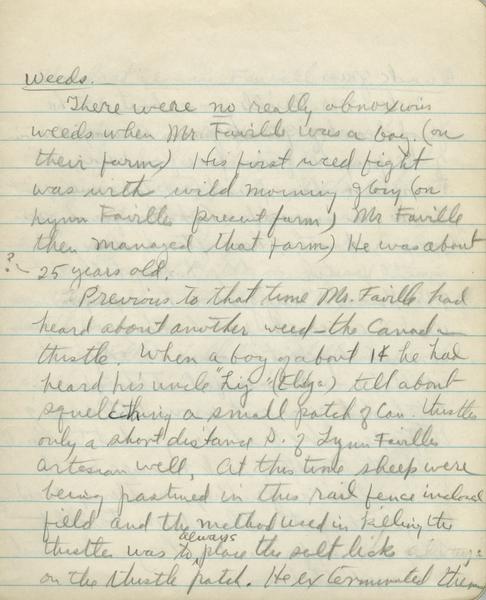 Weeds.
There were no really obnoxious
weeds when Mr. Faville was a boy. (on
their farm) His first weed fight
was with wild morning glory (on
Lynn Favilles present farm) Mr Faville
then managed that farm) He was about
? 25 years old.
Previous to that time Mr. Faville had
heard about another weed—the Canada
thistle. When a boy of about 14 he had
heard his uncle "Lij" (Elija) tell about
squelching a small patch of Can. thistles
only a short distance S. of Lynn Favilles
artesian well. At this time sheep were
being pastured in this rail fence inclosed
field and the method used in killing the
thistles was always to place the salt licks
on the thistle patch. He exterminated them